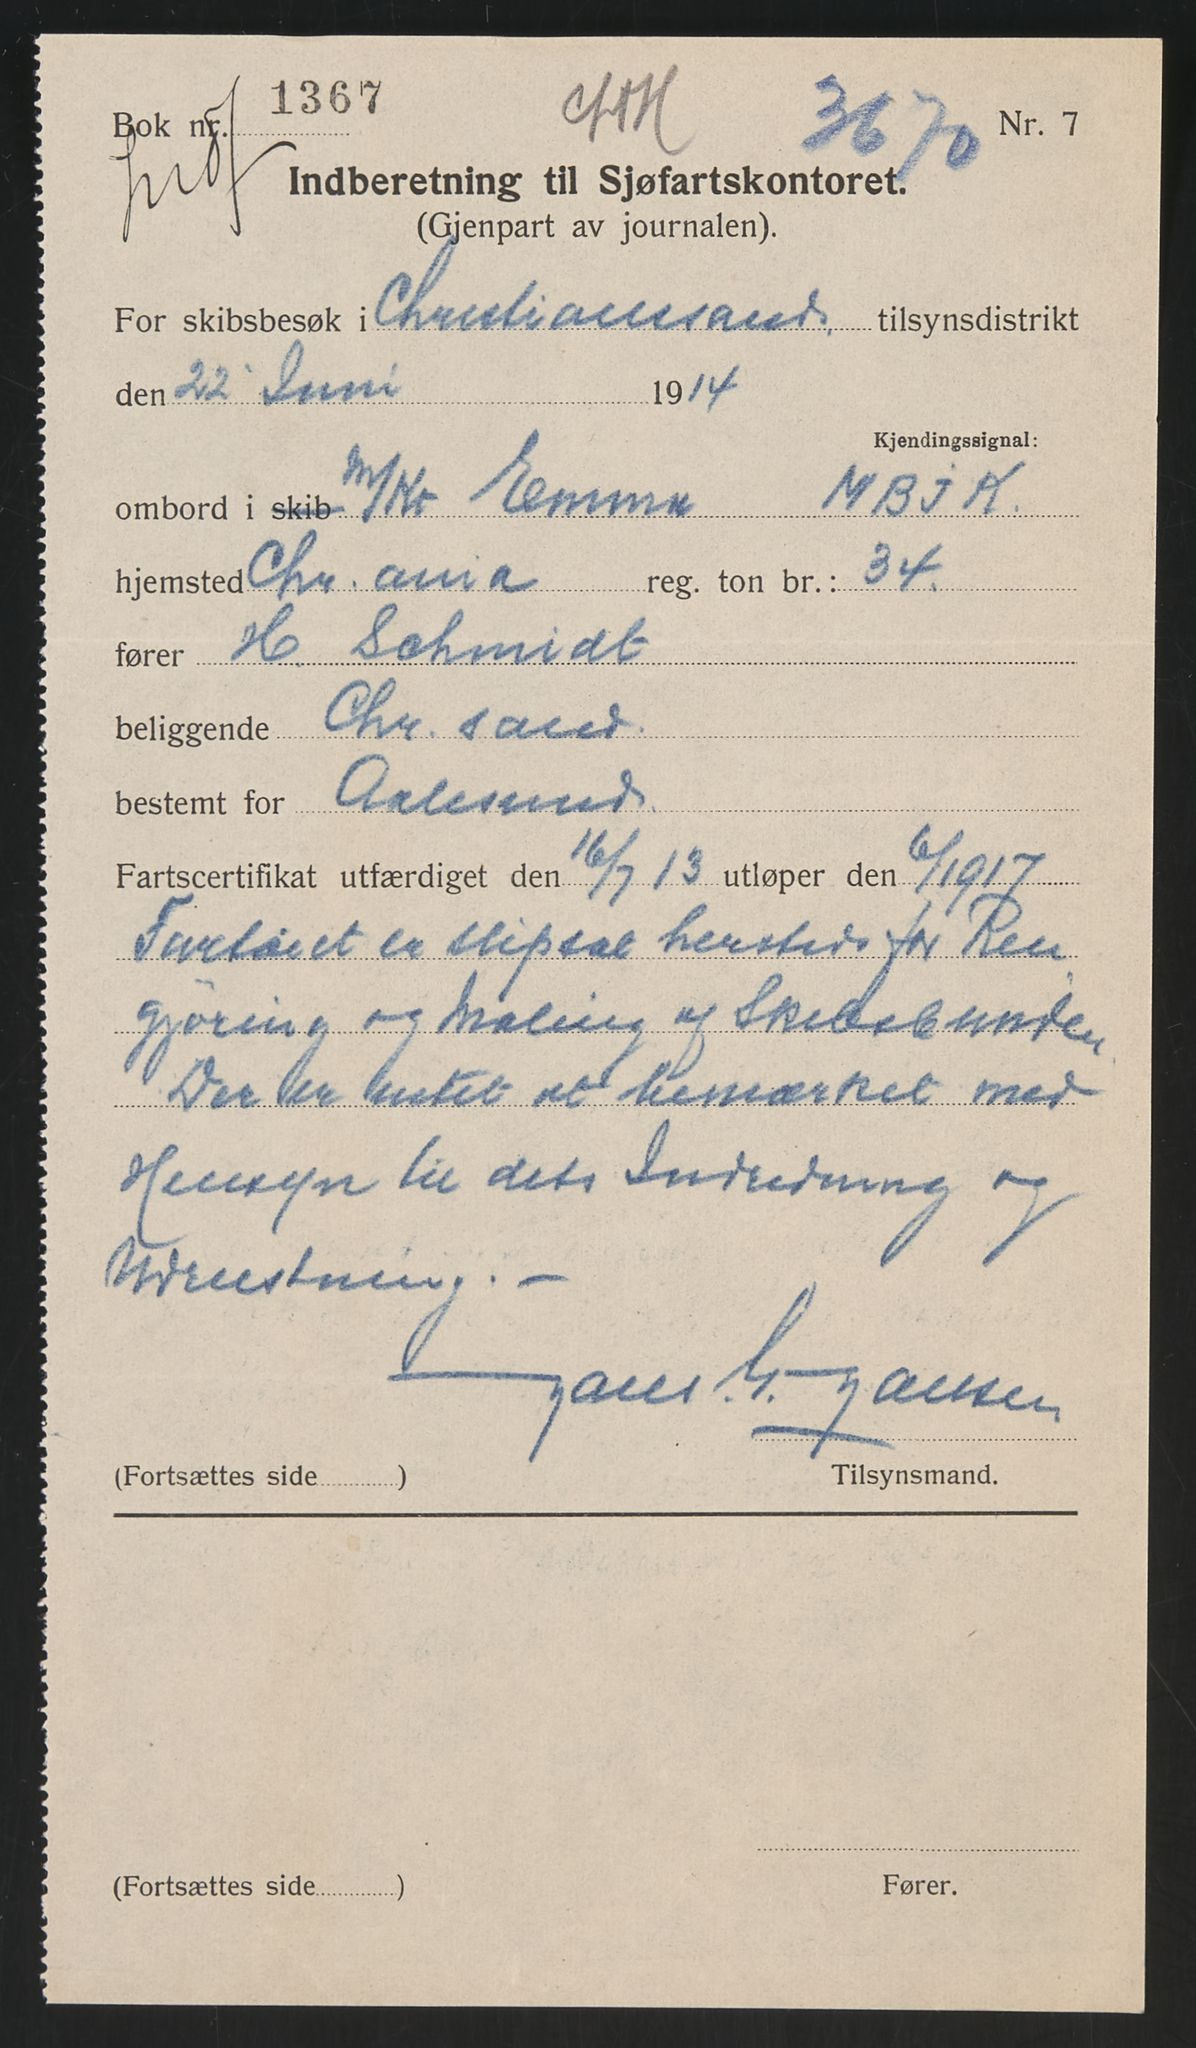 Bok nr. 1367 3670 Nr. 7
Indberetning til Sjøfartskontoret.
(Gjenpart av journalen).
For skibsbesøk i Christianssand. tilsynsdistrikt
den 22' Juni 1914
Kjendingssignal:
ombord i skib M/Kt Emma MBJK.
hjemsted Chr. ania reg. ton br.: 34.
fører H. Schmidt
beliggende Chr. sand.
bestemt for Aalesund.
Fartscertifikat utfærdiget den 16/7 13 utløper den 6/1917
Fartöiet er slipsat hersteds for Ren
gjöring og Maling af Skibsbunden.
Der er intet at bemærket med
Hensyn til dets Indredning og
Udrustning. —
Hans G. Jansen
(Fortsættes side ) Tilsynsmand.
(Fortsættes side ) Fører.